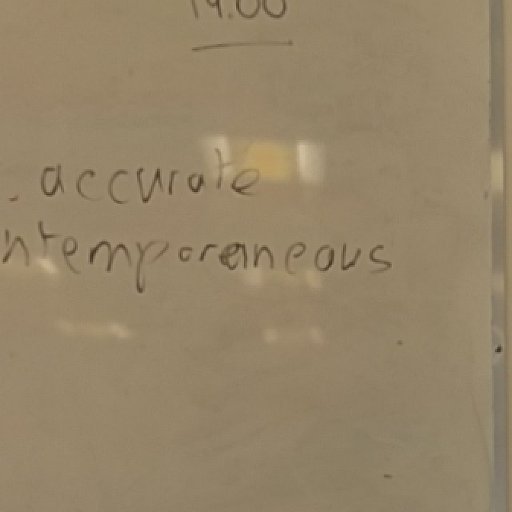 14.00
. accurate
ntemporaneous